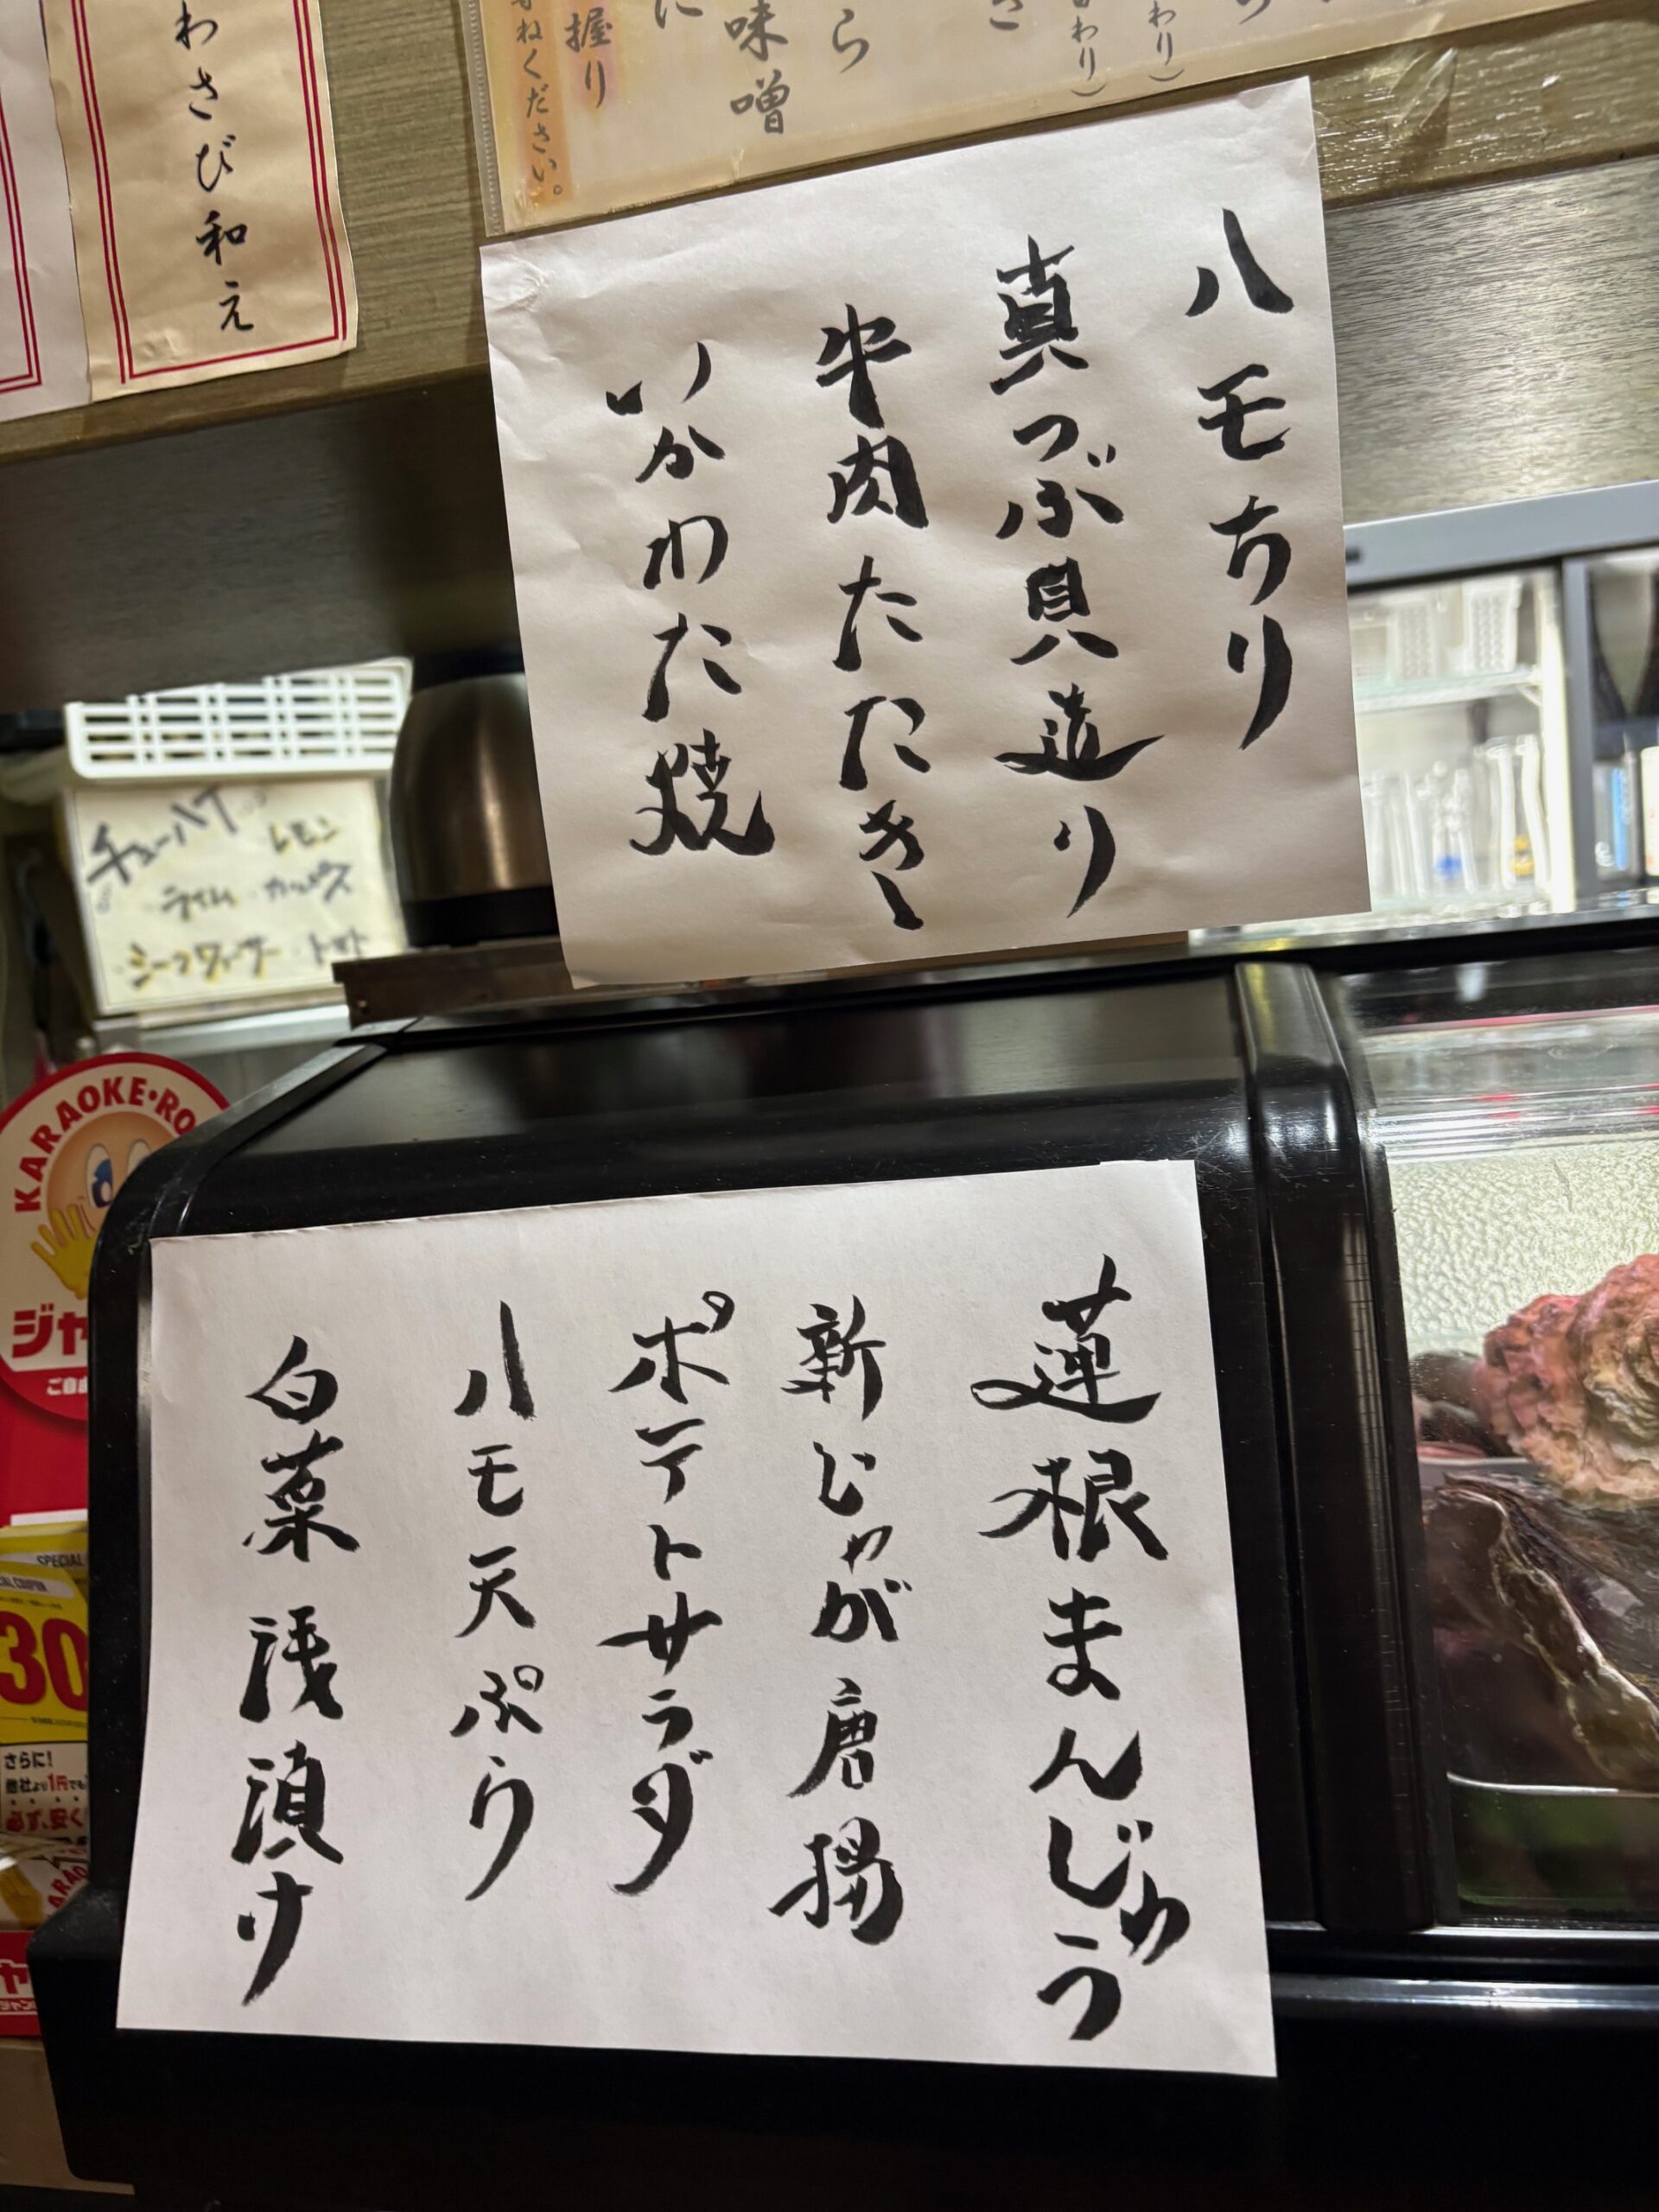 わさび和え
握り
ねください。
味噌
ハモちり
真つぶ貝造り
牛肉たたき
いかわた焼
チューハイ
レモン
ライム・カルピス
シークワーサー・トマト
KARAOKE・RO
ジャ
ご自由
蓮根まんじゅう
新じゃが唐揚
ポテトサラダ
ハモ天ぷら
白菜浅漬け
SPECIAL
COUPON
30
さらに!
他社より1円でも
必ず、安く